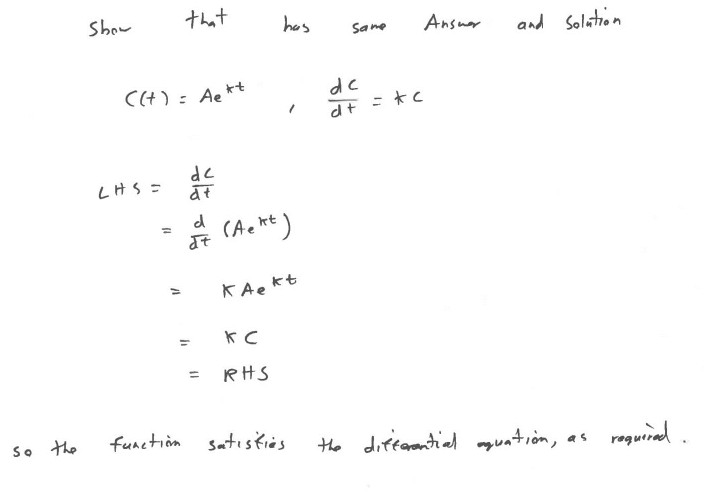 Show that has same Answer and Solution
C(t) = Ae^{kt} , dC/dt = kC
LHS = dC/dt
= d/dt (Ae^{kt})
= kAe^{kt}
= kC
= RHS
so the function satisfies the differential equation, as required.